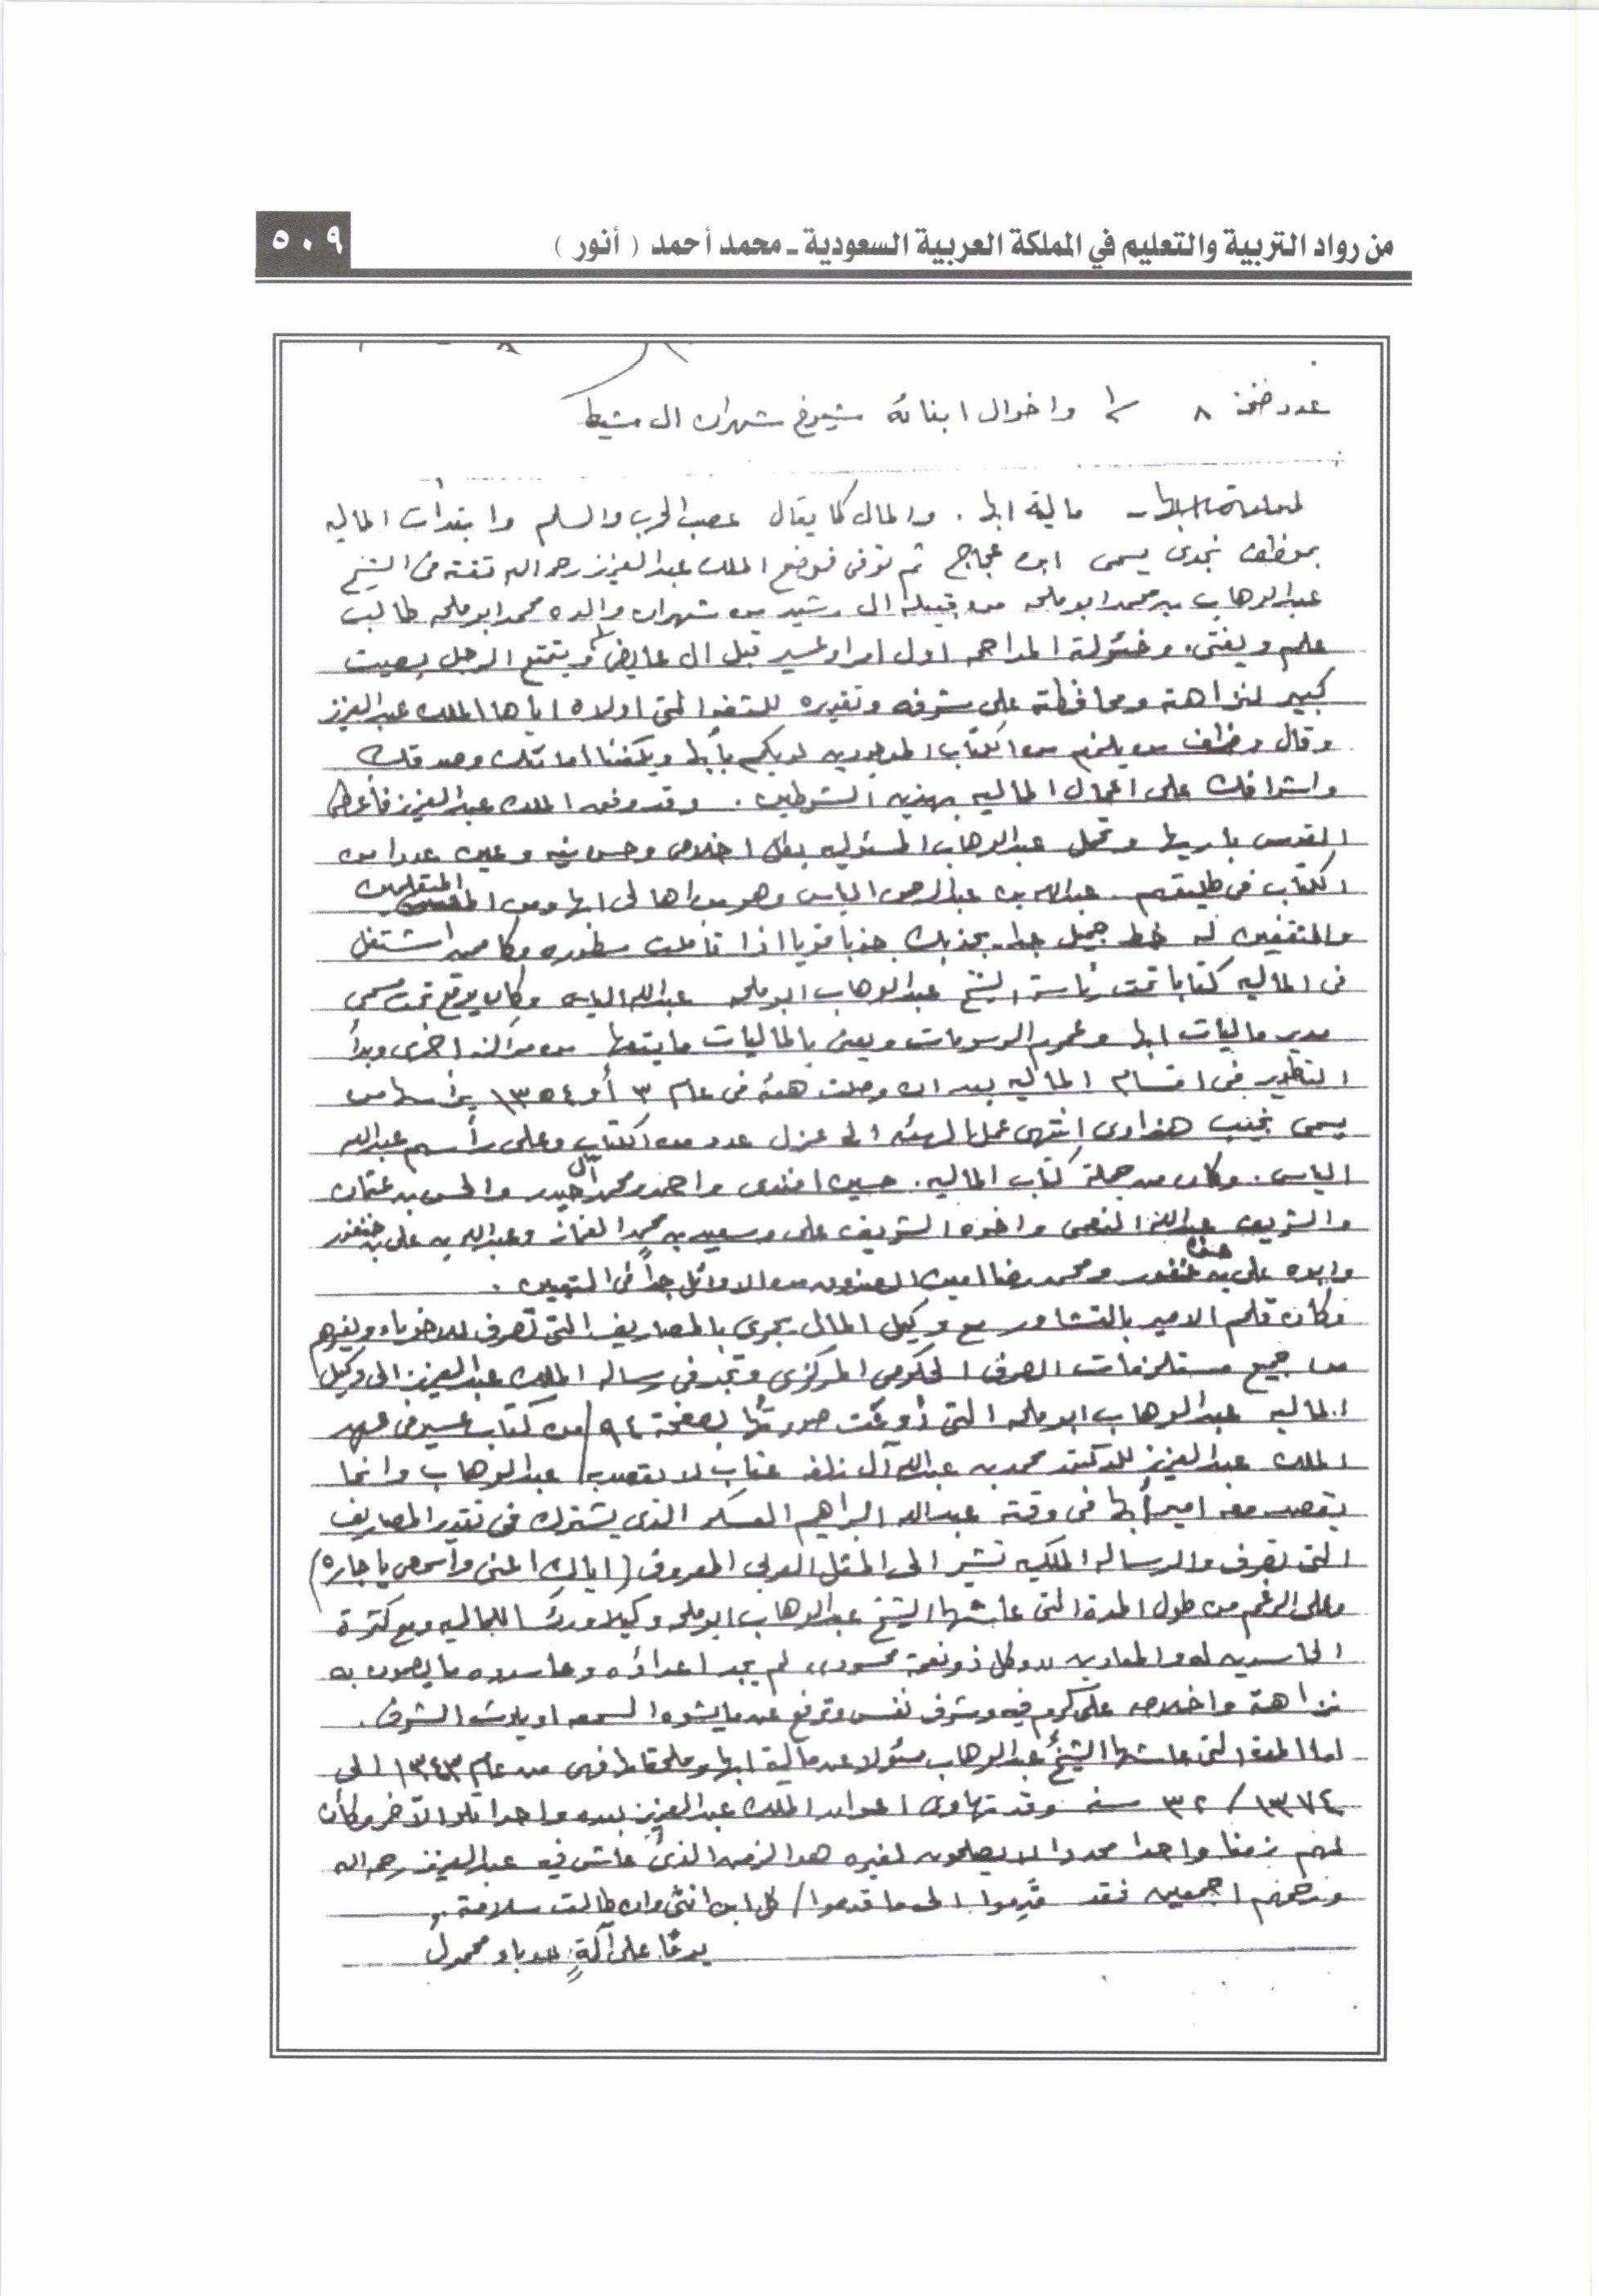 من رواد التربية والتعليم في المملكة العربية السعودية ـ محمد أحمد ( أنور )
٥٠٩
عدد صفحة ٨ واخوال ابنائه شيوخ شهران ال مشيط
مالية ابها . والمال كما يقال عصب الحرب والسلم وابتدأت الماليه
بموظف نجدى يسمى ابن عجاج ثم توفى فوضع الملك عبدالعزيز رحمه اله ثقته فى الشيخ
عبدالوهاب بن محمد ابو ملحه من قبيلة ال رشيد من شهران والده محمد ابو ملحه طالب
علم ويفتى وخئولة المداحمه اول امراء عسير قبل ال عايض ويتمتع الرجل بصيت
كبير لنزاهته ومحافظته على شرفه وتقديره للثقه التى اولاه اياها الملك عبدالعزيز
وقال وظف من يلزم من الكتاب الموجودين لديكم بأبها ويكفينا امانتك وصدقك
واشرافك على اعمال الماليه بهذين الشرطين . وقد وفقه الملك عبدالعزيز فأعطى
القوس باريها وتحمل عبدالوهاب المسئوليه بكل اخلاص وحسن نيه وعين عددا من
الكتاب فى طليعتهم عبدالله بن عبدالرحمن الياس وهو من اهالى ابها ومن المتعلمين
والمثقفين له خط جميل جدا يجذبك جذبا قويا اذا تأملت سطوره وكان ممن اشتغل
فى الماليه كتابا تحت رئاسة الشيخ عبدالوهاب ابو ملحه عبدالله الياس وكان يوقع تحت مسمى
مدير ماليات ابها وعموم الرسومات ويعنى بالماليات ما يتبعها من مراكز اخرى وبدأ
التطوير فى اقسام الماليه بعد ان وصلت هيئه فى عام ٣ أو ١٣٥٤ يرأسها من
يسمى نجيب هنداوى انتهى عمل الهيئه الى عزل عدد من الكتاب وعلى رأسهم عبدالله
الياس . وكان من جملة كتاب الماليه . حسين افندى واحمد ومحمد آل حيدر والحسن بن عثمان
والشريف عبدالله النعمى واخوه الشريف على وسعيد بن محمد الغماز وعبدالله بن على بن خنفور
وابوه على بن خنفور ومحمد رضا امين الصندوق من الاوائل جداً فى التعيين .
وكان قلم الامير بالتشاور مع وكيل المال يجرى بالمصاريف التى تصرف للاخوياء وغيرهم
من جميع مستلزمات الصرف الحكومى المركزى وتجد فى رسالة الملك عبدالعزيز الى وكيل
الماليه عبدالوهاب ابو ملحه التى صورتها بصفحة ٩٤ من كتاب عسير فى عهد
الملك عبدالعزيز للدكتور محمد بن عبدالله آل زلفه عتاب لا يقصد به عبدالوهاب وانما
يقصد معه امير أبها فى وقته عبدالله ابراهيم العسكر الذى يشترك فى تقدير المصاريف
التى تصرف والرساله الملكيه تشير الى المثل العربى المعروف ( اياك اعنى واسمعى يا جاره )
وعلى الرغم من طول المدة التى عاشها الشيخ عبدالوهاب ابو ملحه وكيلا ورئيسا للماليه ومع كثرة
الحاسدين له والمعادين وكل ذو نعمة محسود، لم يجد اعداؤه وحاسدوه ما يصمون به
نزاهته واخلاصه على كرم فيه وشرف نفس وترفع عن ما يشوه السمعه او يلوث الشرف .
اما المدة التى عاشها الشيخ عبدالوهاب مسئولا عن مالية ابها وملحقاتها فهى من عام ١٣٤٣ الى
١٣٧٤ / ٣٢ سنه وقد تهاوى اعوان الملك عبدالعزيز بعده واحدا تلو الآخر وكأن
لهم زمنا واحدا محددا لا يصلحون لغيره هو الزمن الذى عاش فيه عبدالعزيز رحمه اله
ورحمهم اجمعين فقد قدموا الى ما قدموا / كل ابن انثى وان طالت سلامته
يوماً على آلةٍ حدباء محمول